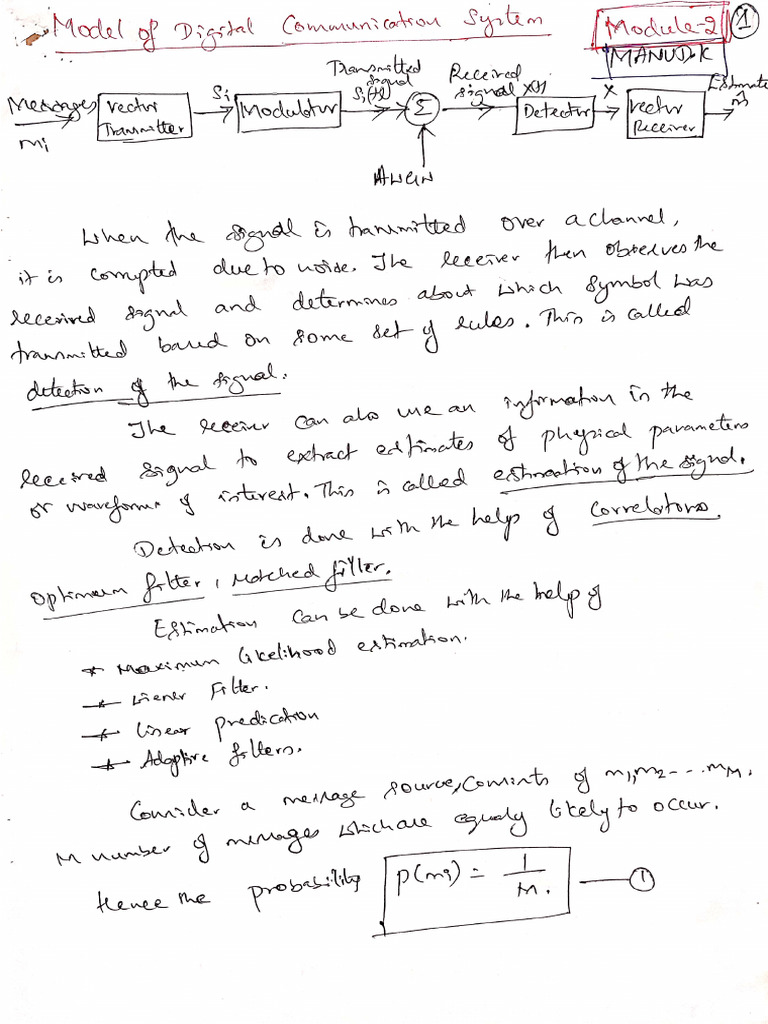 Model of Digital Communication System
Module-2
1
MANU D.K
Messages
mi
Vector
Transmitter
Si
Modulator
Transmitted
signal
Si(t)
Σ
AWGN
Received
signal x(t)
Detector
X
Vector
Receiver
Estimate
m̂
When the signal is transmitted over a channel,
it is corrupted due to noise. The receiver then observes the
received signal and determines about which symbol was
transmitted based on some set of rules. This is called
detection of the signal.
The receiver can also use an information in the
received signal to extract estimates of physical parameters
or waveforms of interest. This is called estimation of the signal.
Detection is done with the help of Correlators,
Optimum filter, Matched filter.
Estimation can be done with the help of
* Maximum likelihood estimation.
* Wiener Filter.
* Linear predication
* Adaptive filters.
Consider a message source, Consists of m1, m2 --- mM.
M number of messages which are equaly likely to occur.
Hence the probability p(mi) = 1/M. — 1